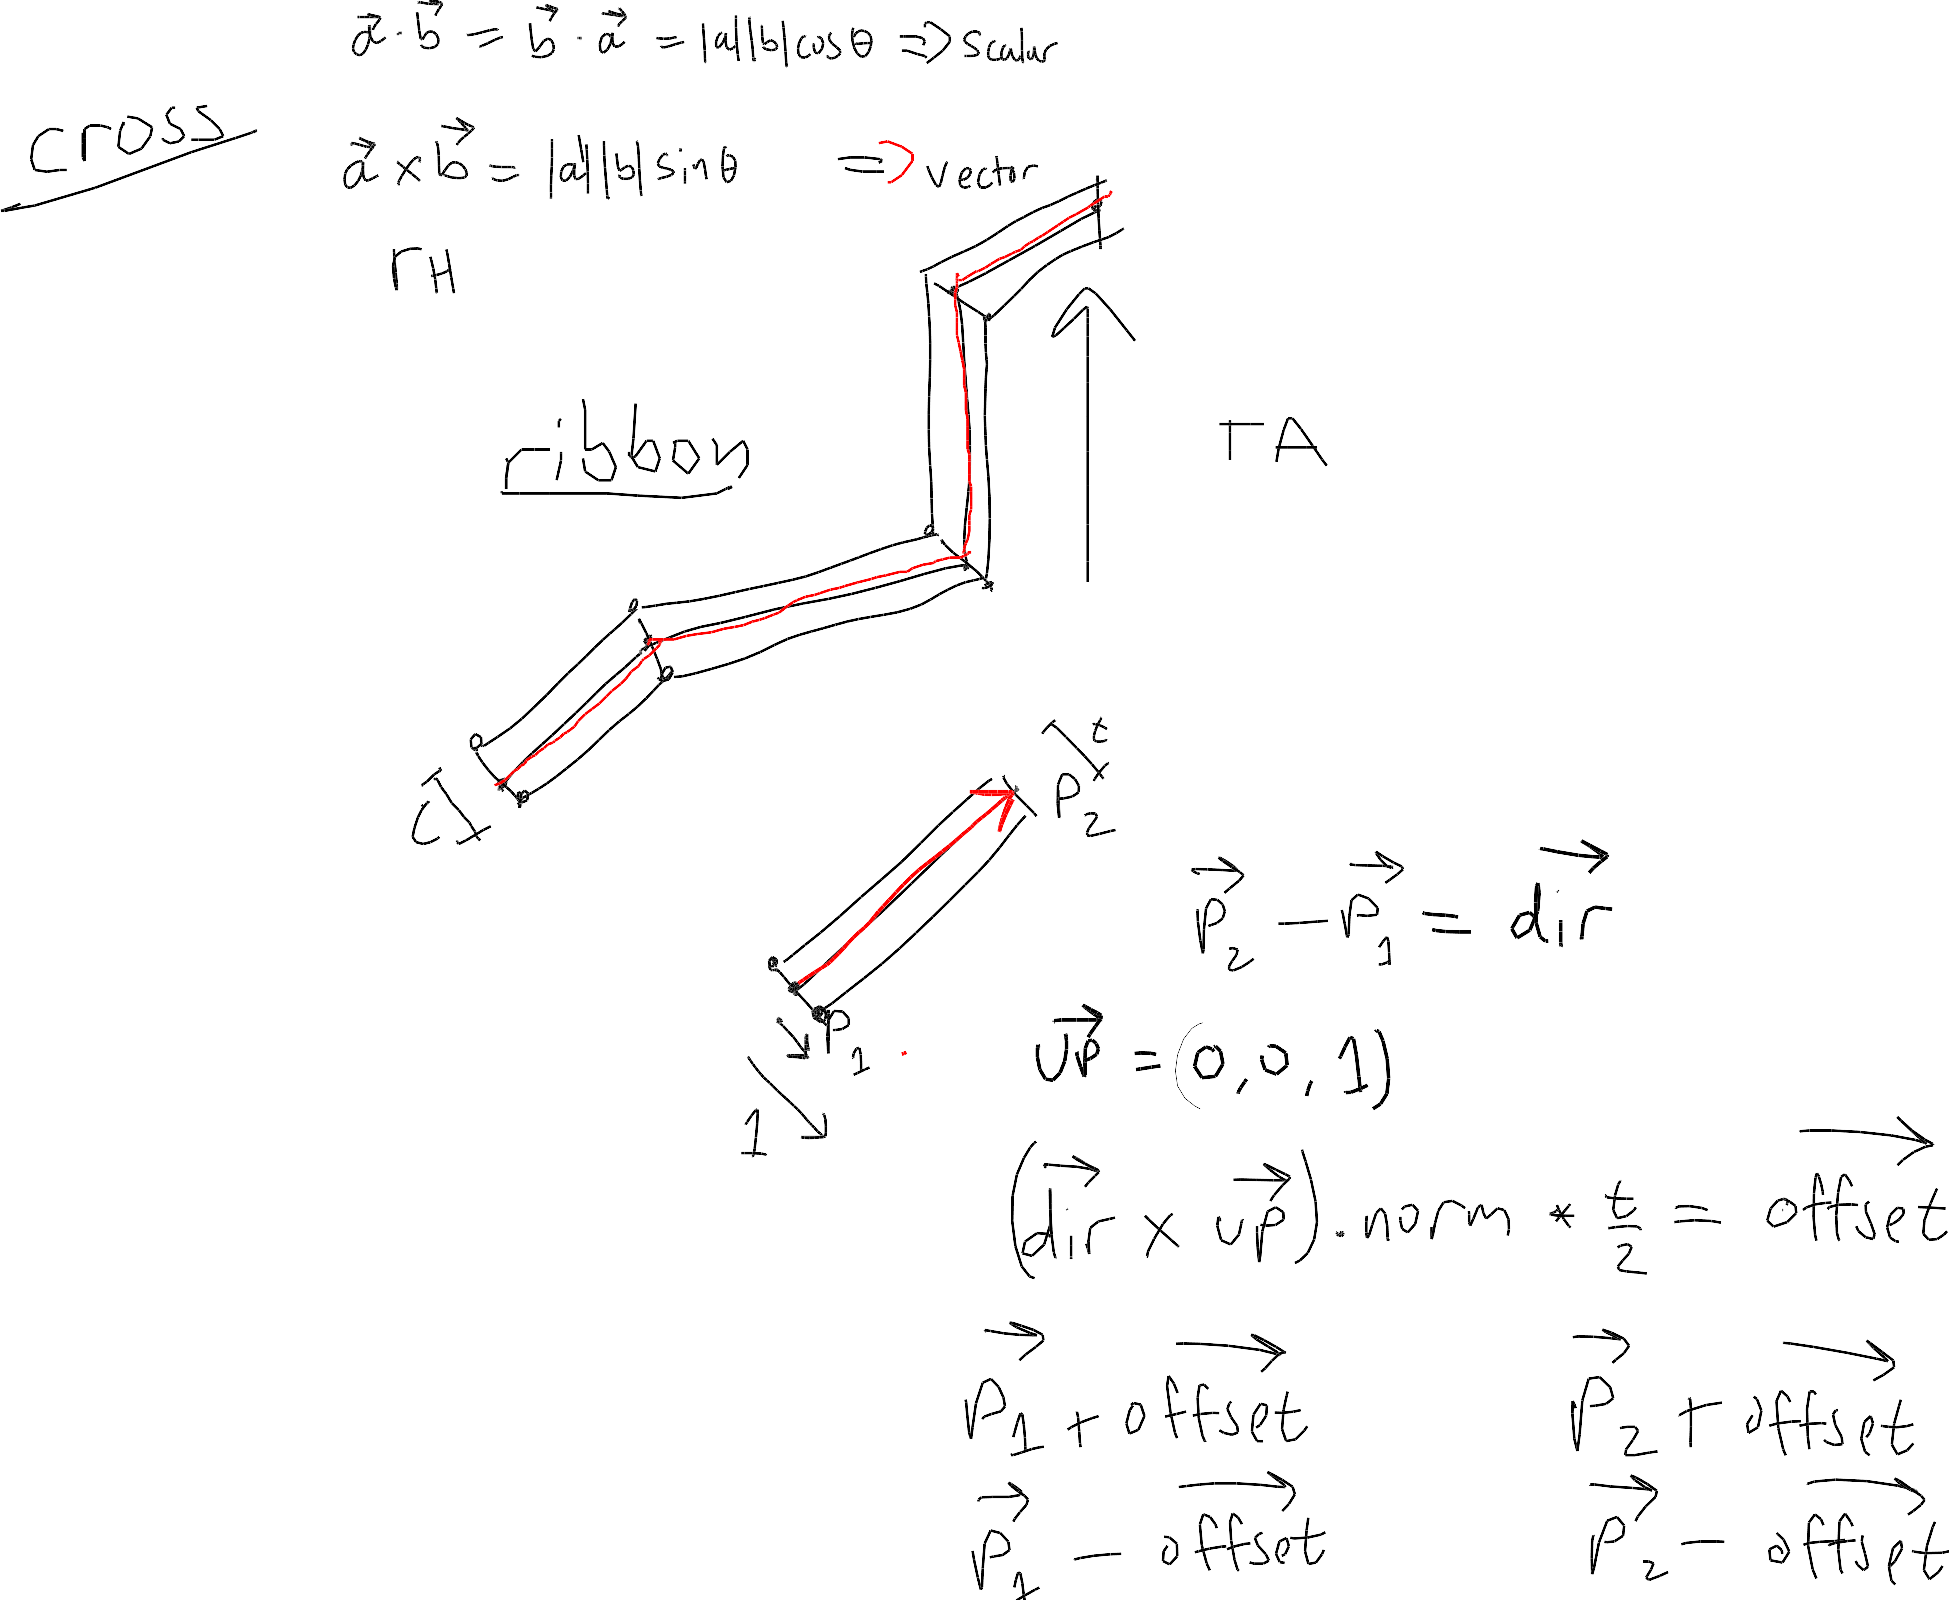 a⃗ · b⃗ = b⃗ · a⃗ = |a||b|cosθ => scalar
cross
a⃗ x b⃗ = |a||b| sinθ => vector
rH
ribbon
TA
t
P2
P⃗2 - P⃗1 = dir⃗
P1
up⃗ = (0,0,1)
1
(dir⃗ x up⃗).norm * t/2 = offset⃗
P⃗1 + offset⃗ P⃗2 + offset⃗
P⃗1 - offset⃗ P⃗2 - offset⃗